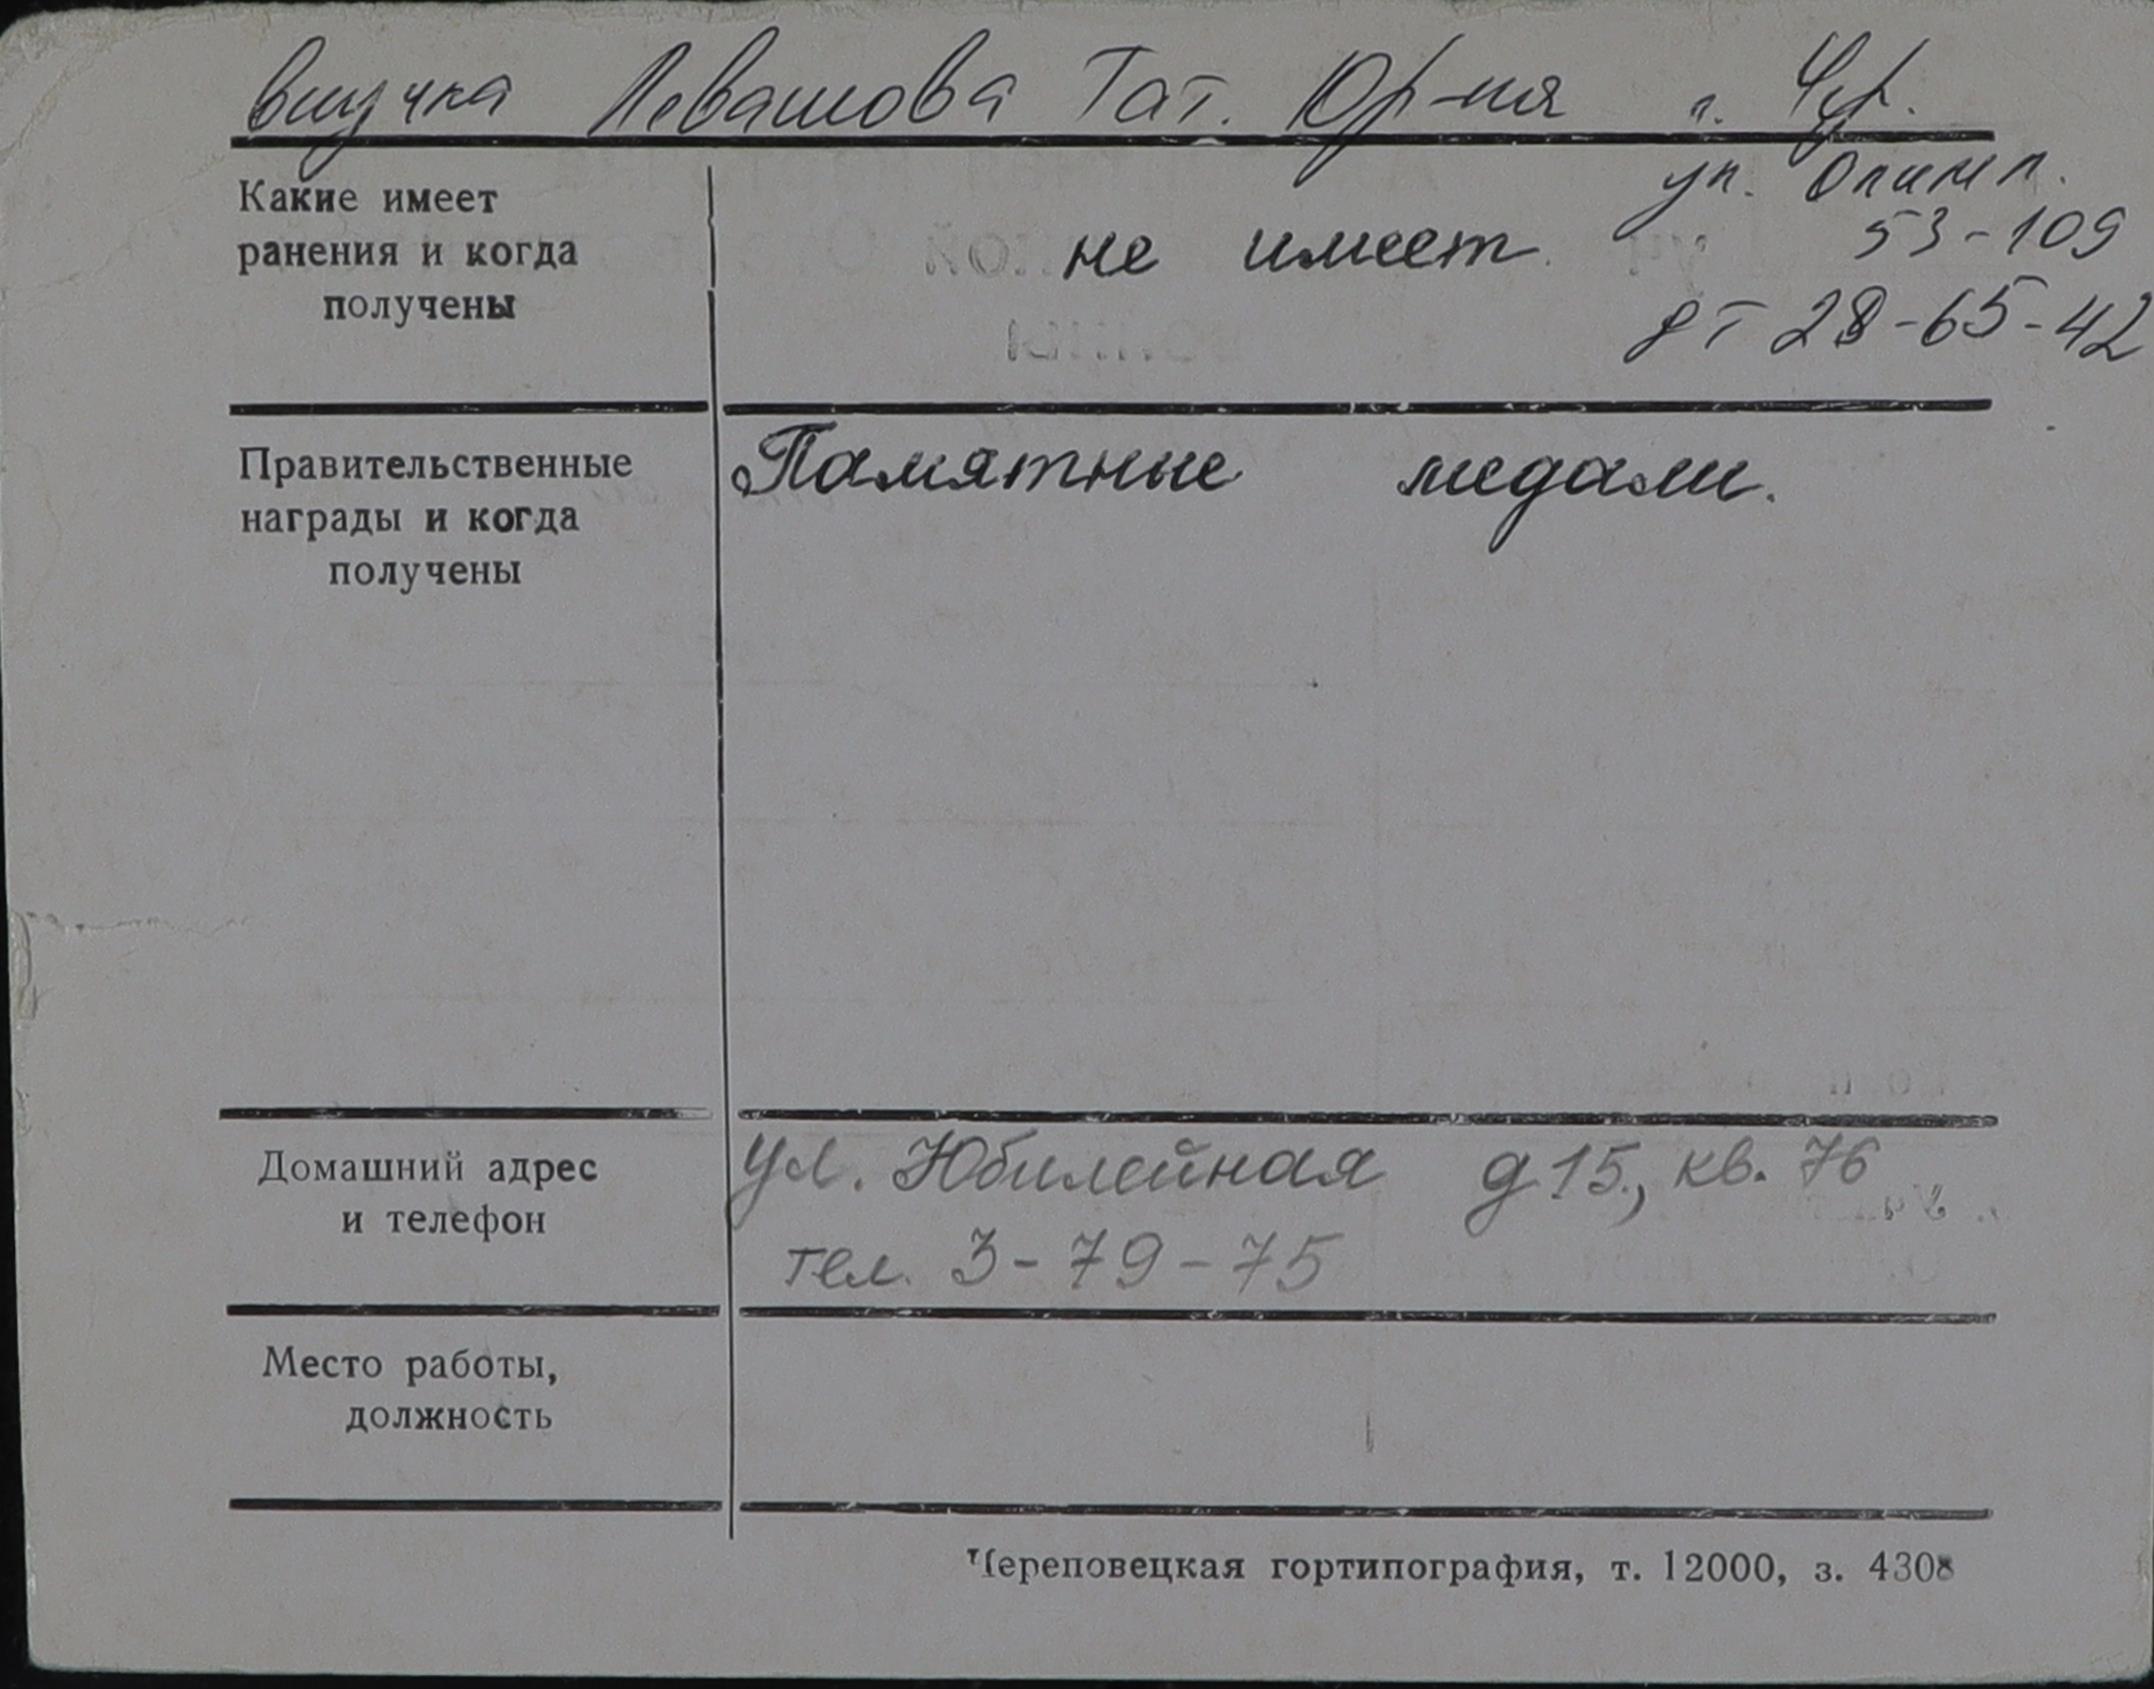 внучка Левашова Тат. Юр-на г. Чер.
ул. Олимп.
53-109
дт 28-65-42
Какие имеет
ранения и когда
получены
не имеет.
Правительственные
награды и когда
получены
Памятные медали.
Домашний адрес
и телефон
ул. Юбилейная д 15., кв. 76
тел. 3-79-75
Место работы,
должность
Череповецкая гортипография, т. 12000, з. 4308